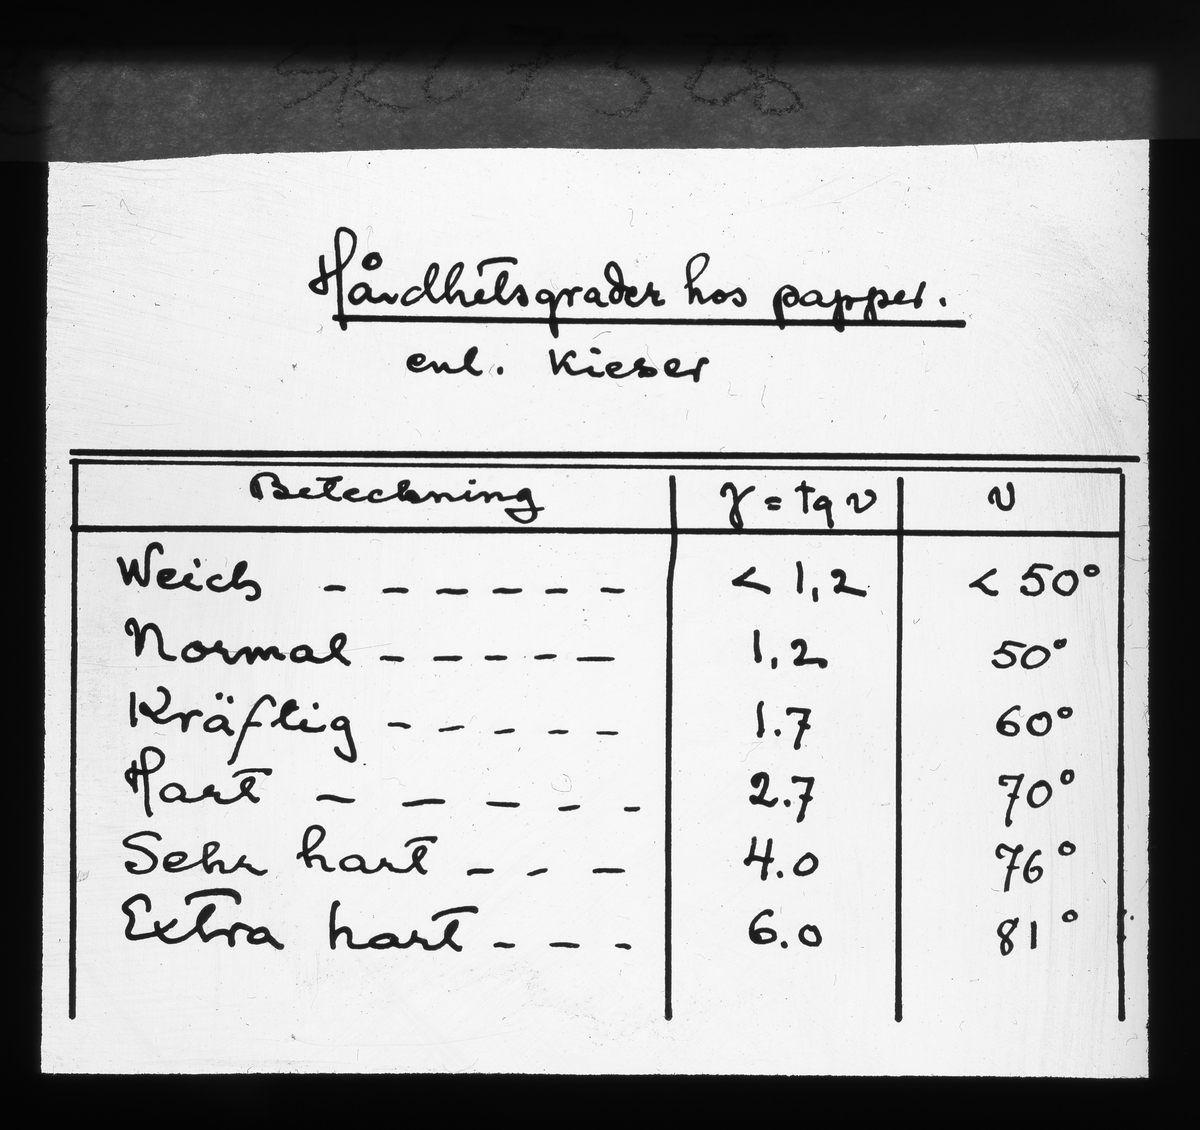 Hårdhetsgrader hos papper.
enl. Kieser
Beteckning γ = tg v v
Weich - - - - - - < 1,2 < 50°
Normal - - - - - 1,2 50°
Kräftig - - - - - 1.7 60°
Hart - - - - - 2.7 70°
Sehr hart - - - 4.0 76°
Extra hart - - - 6.0 81°